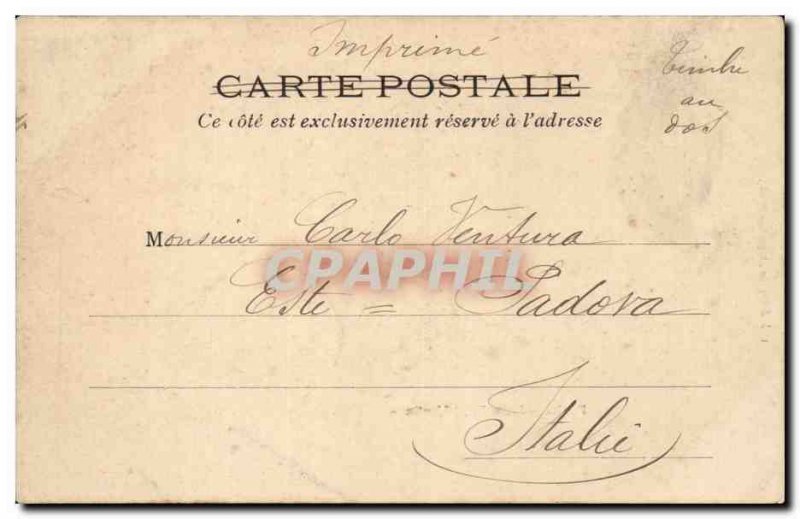 Imprimé
CARTE POSTALE
Ce côté est exclusivement réservé à l'adresse
Timbre
au
dos
Monsieur Carlo Ventura
CPAPHIL
Este = Padova
Italie